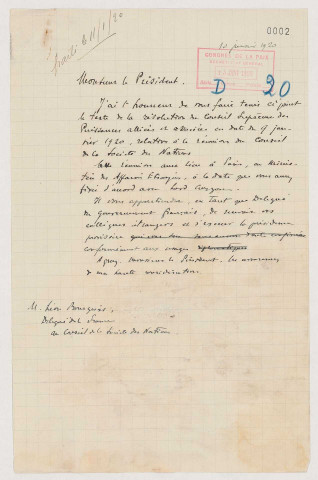 0002
10 janvier 1920
CONGRÈS DE LA PAIX
D 20
Monsieur le Président.
J'ai l'honneur de vous faire tenir ci-joint
le texte de la résolution du Conseil Suprême des
Puissances alliées et associées, en date du 9 jan-
vier 1920, relative à la réunion du Conseil
de la Société des Nations.
Cette réunion aura lieu à Paris, au Minis-
tère des Affaires Etrangères, à la date que vous avez
fixée d'accord avec Lord Curzon.
Il vous appartiendra, en tant que Délégué
du gouvernement français, de recevoir vos
collègues étrangers et d'exercer la présidence
provisoire
conformément aux usages
Agréez, Monsieur le Président, les assurances
de ma haute considération.
M. Léon Bourgeois,
Délégué de la France
au Conseil de la Société des Nations